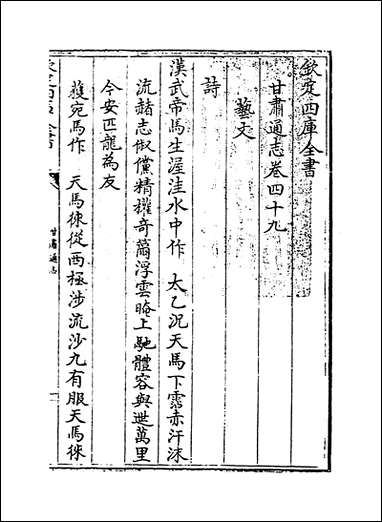 欽定四庫全書
甘肅通志卷四十九
藝文
詩
漢武帝馬生渥洼水中作 太乙況天馬下霑赤汗沫
流赭志俶儻精權奇籋浮雲晻上馳體容與迣萬里
今安匹龍為友
獲宛馬作 天馬徠從西極涉流沙九有服天馬徠
甘肅通志